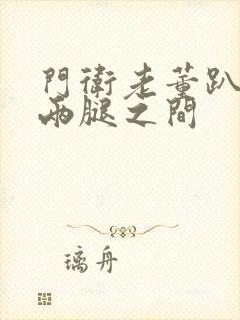 門衛老董趴
兩腿之間
璃舟